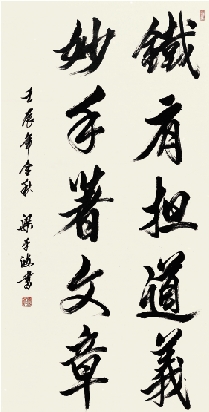 鐵肩担道義
妙手著文章
壬辰年金秋 梁子海書